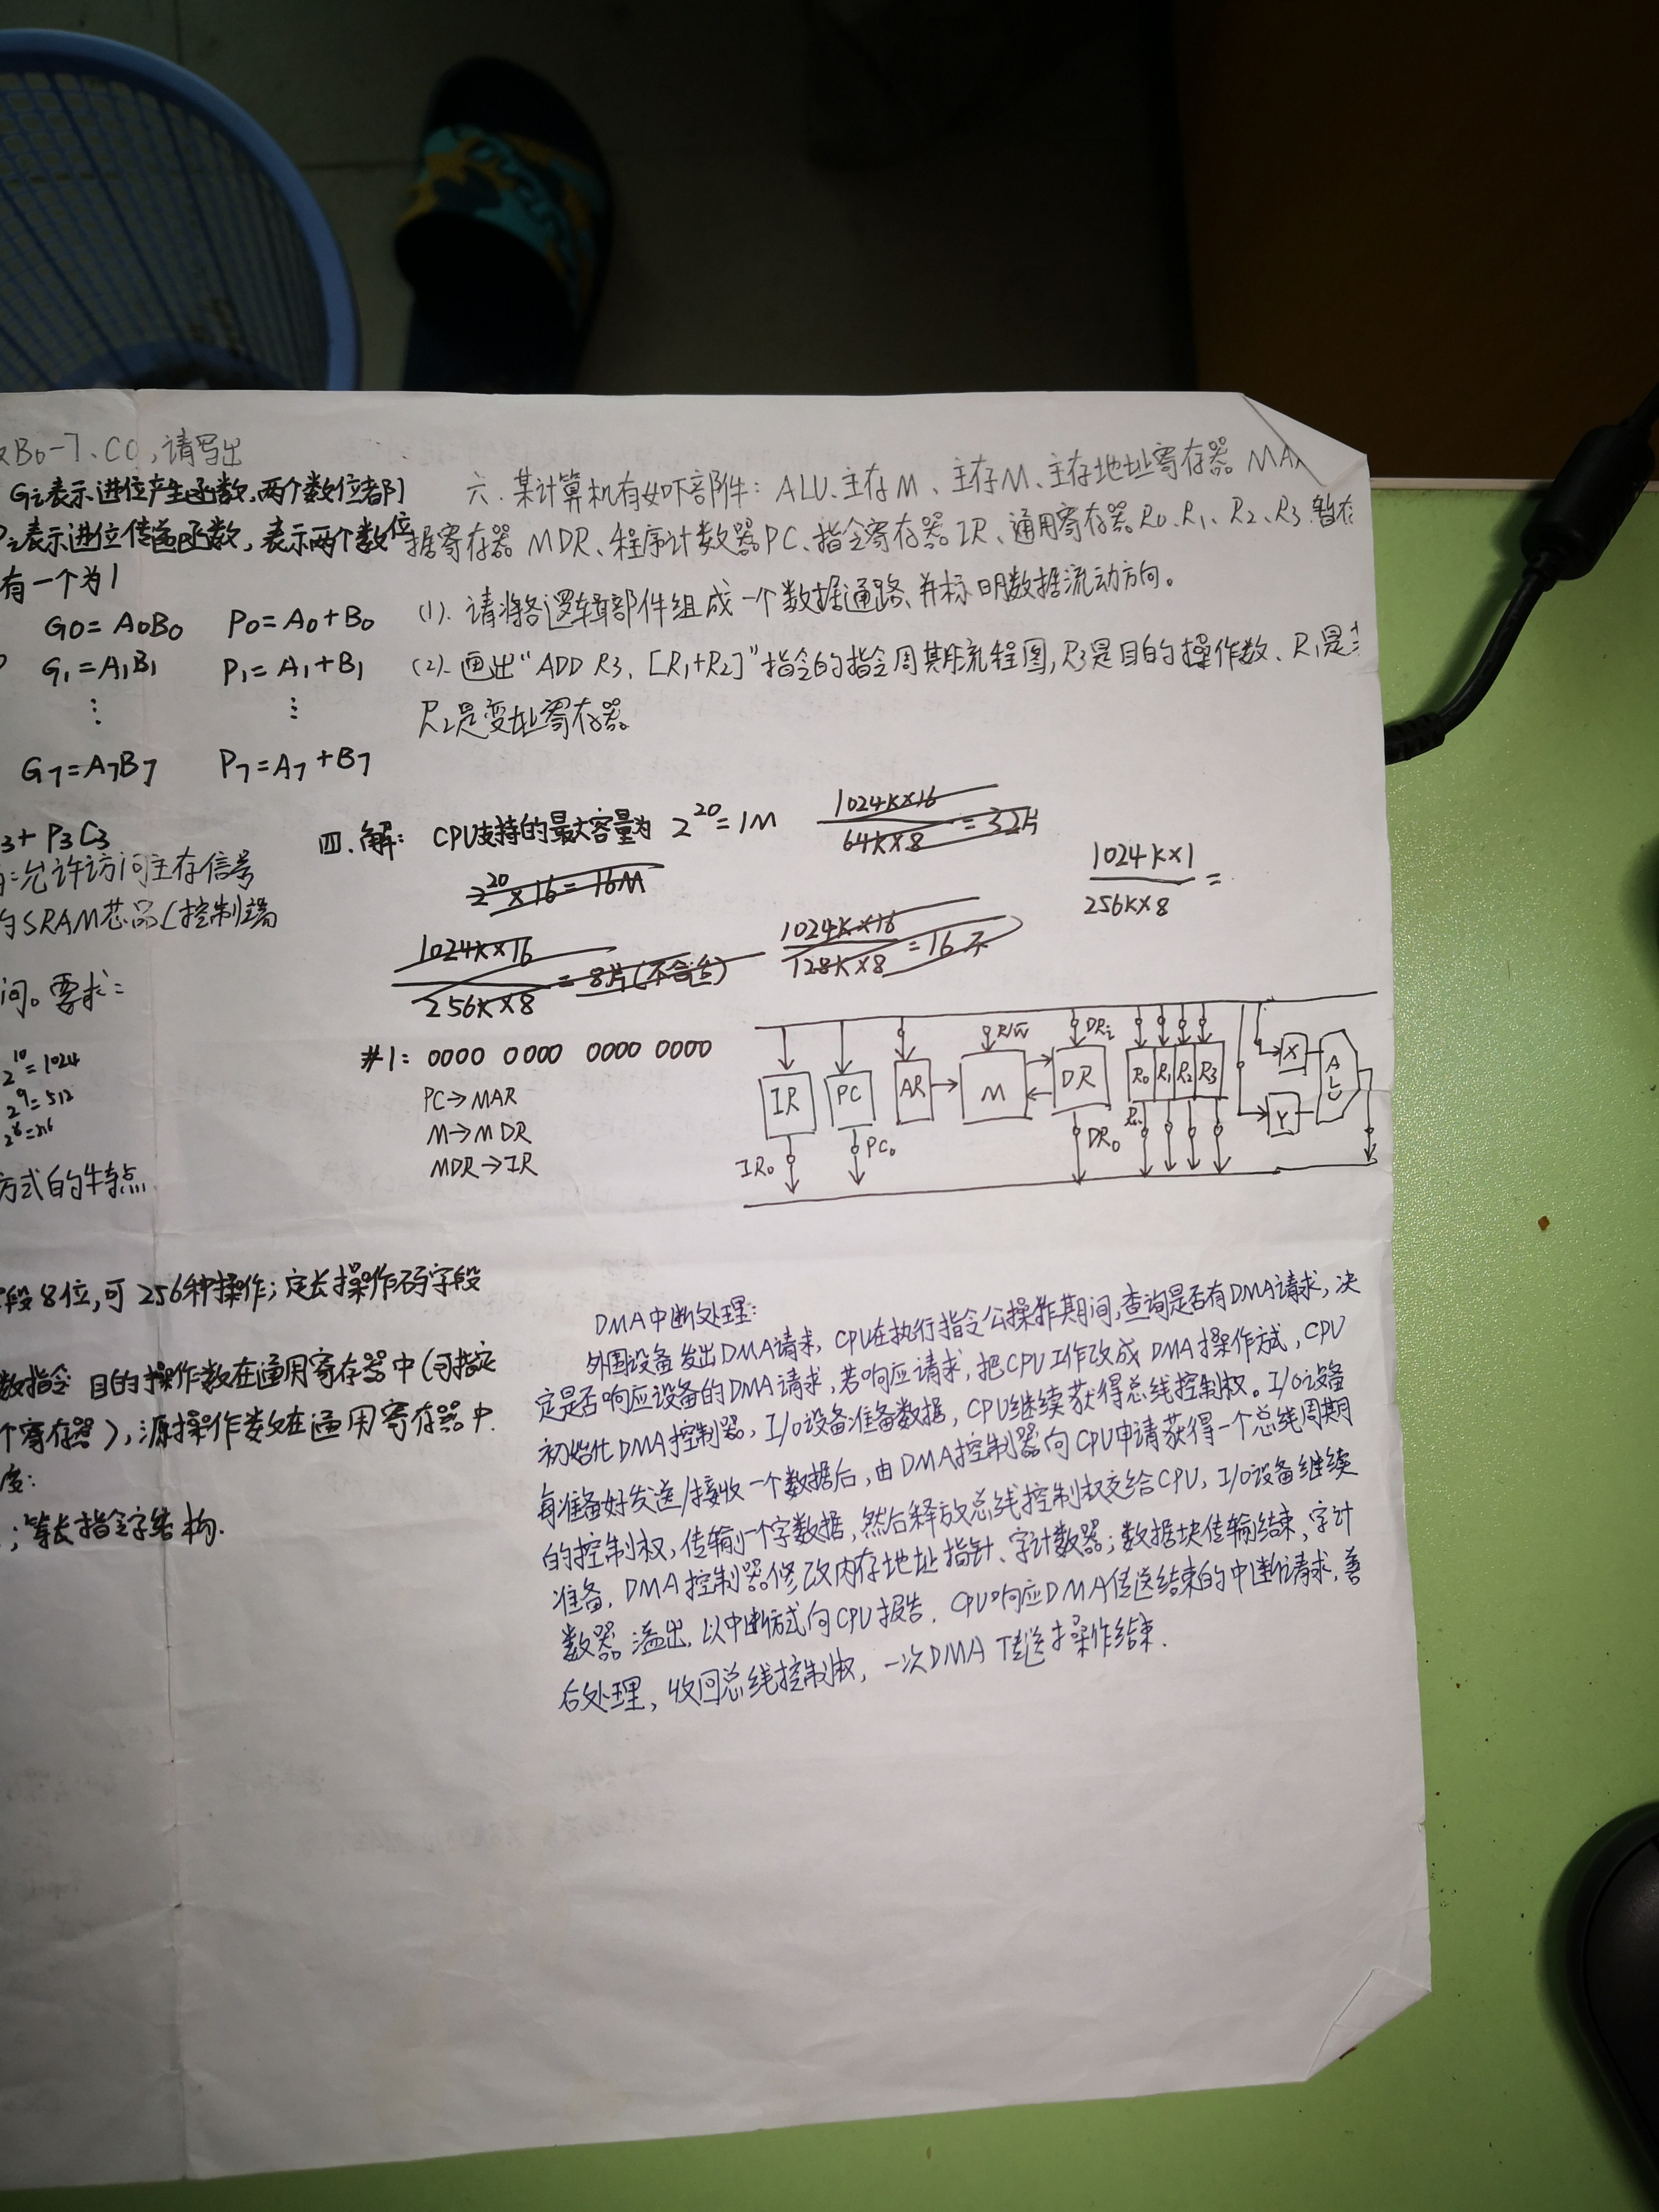 B0-7、C0,请写出
Gi表示进位产生函数,两个数位都
Pi表示进位传递函数,表示两个数位
有一个为1
G0=A0B0 P0=A0+B0
G1=A1B1 P1=A1+B1
⋮ ⋮
G7=A7B7 P7=A7+B7
3+P3C3
:允许访问主存信号
的SRAM芯片[控制端
问。要求:
2^10=1024
2^9=512
方式的特点
段8位,可256种操作;定长操作码字段
数指令 目的操作数在通用寄存器中(可指定
个寄存器),源操作数在通用寄存器中.
度:
;等长指令字结构.
六.某计算机有如下部件:ALU、主存M、主存M、主存地址寄存器 MA
据寄存器 MDR、程序计数器PC、指令寄存器IR、通用寄存器R0、R1、R2、R3、暂存
(1).请将各逻辑部件组成一个数据通路、并标明数据流动方向。
(2).画出"ADD R3,[R1+R2]"指令的指令周期流程图,R3是目的操作数、R1是
R2是变址寄存器。
四.解: CPU支持的最大容量为 2^20=1M 1024K×16/64K×8=32片
2^20×16=16M 1024K×1/256K×8=
1024K×16/256K×8=8片(不合适) 1024K×16/128K×8=16
#1: 0000 0000 0000 0000
PC→MAR
M→MDR
MDR→IR
R/W̅ DRi
IR PC AR M DR R0 R1 R2 R3 X Y ALU
IR0 PC0 DR0
DMA中断处理:
外围设备发出DMA请求,CPU在执行指令公操作期间,查询是否有DMA请求,决
定是否响应设备的DMA请求,若响应请求,把CPU工作改成DMA操作方式,CPU
初始化DMA控制器,I/O设备准备数据,CPU继续获得总线控制权。I/O设备
每准备好发送/接收一个数据后,由DMA控制器向CPU申请获得一个总线周期
的控制权,传输一个字数据,然后释放总线控制权交给CPU,I/O设备继续
准备,DMA控制器修改内存地址指针、字计数器;数据块传输结束,字计
数器溢出,以中断方式向CPU报告,CPU响应DMA传送结束的中断请求,善
后处理,收回总线控制权,一次DMA传送操作结束.